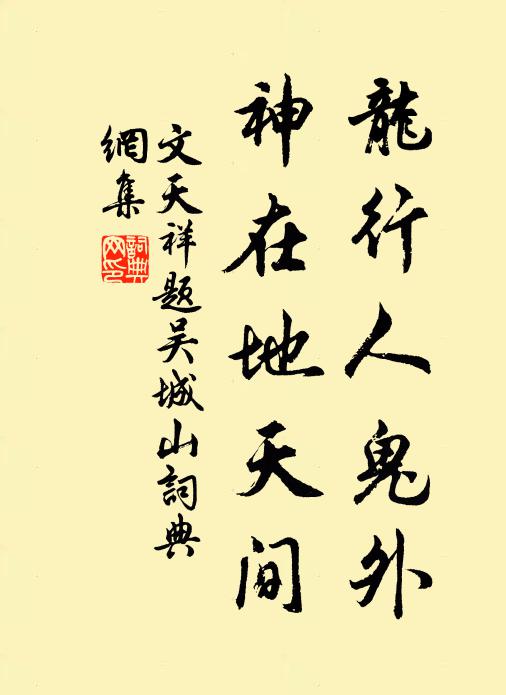 龍行人鬼外
神在地天间
文天祥题吴城山詞典
網集
詞典
网印